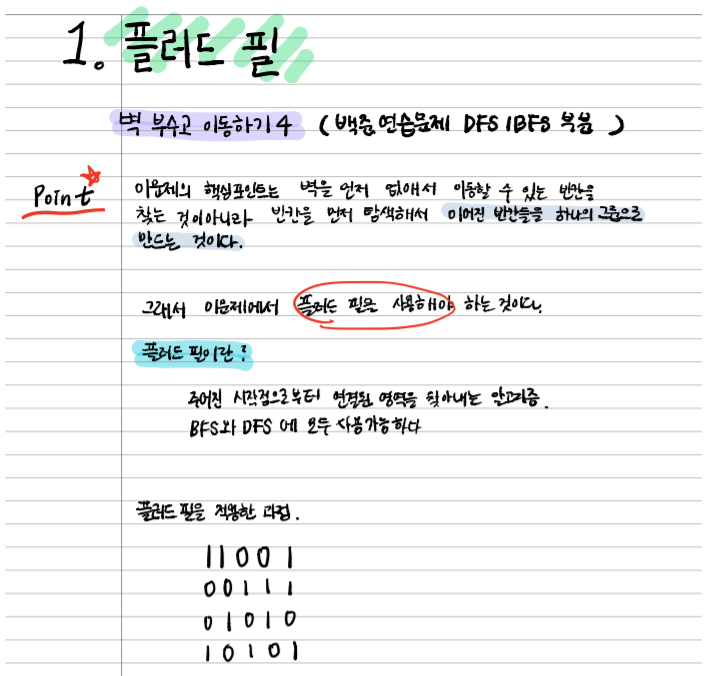 1. 플러드 필
벽 부수고 이동하기 4 (백준 연습문제 DFS/BFS 복봄)
Point
이문제의 핵심포인트는 벽을 먼저 없애서 이동할 수 있는 빈칸을
찾는 것이아니라 빈칸을 먼저 탐색해서 이어진 빈칸들을 하나의 그룹으로
만드는 것이다.
그래서 이문제에서 플러드 필을 사용해야 하는 것이다.
플러드 필이란?
주어진 시작점으로부터 연결된 영역을 찾아내는 알고리즘.
BFS와 DFS에 모두 사용가능하다
플러드 필을 적용한 과정.
11001
00111
01010
10101